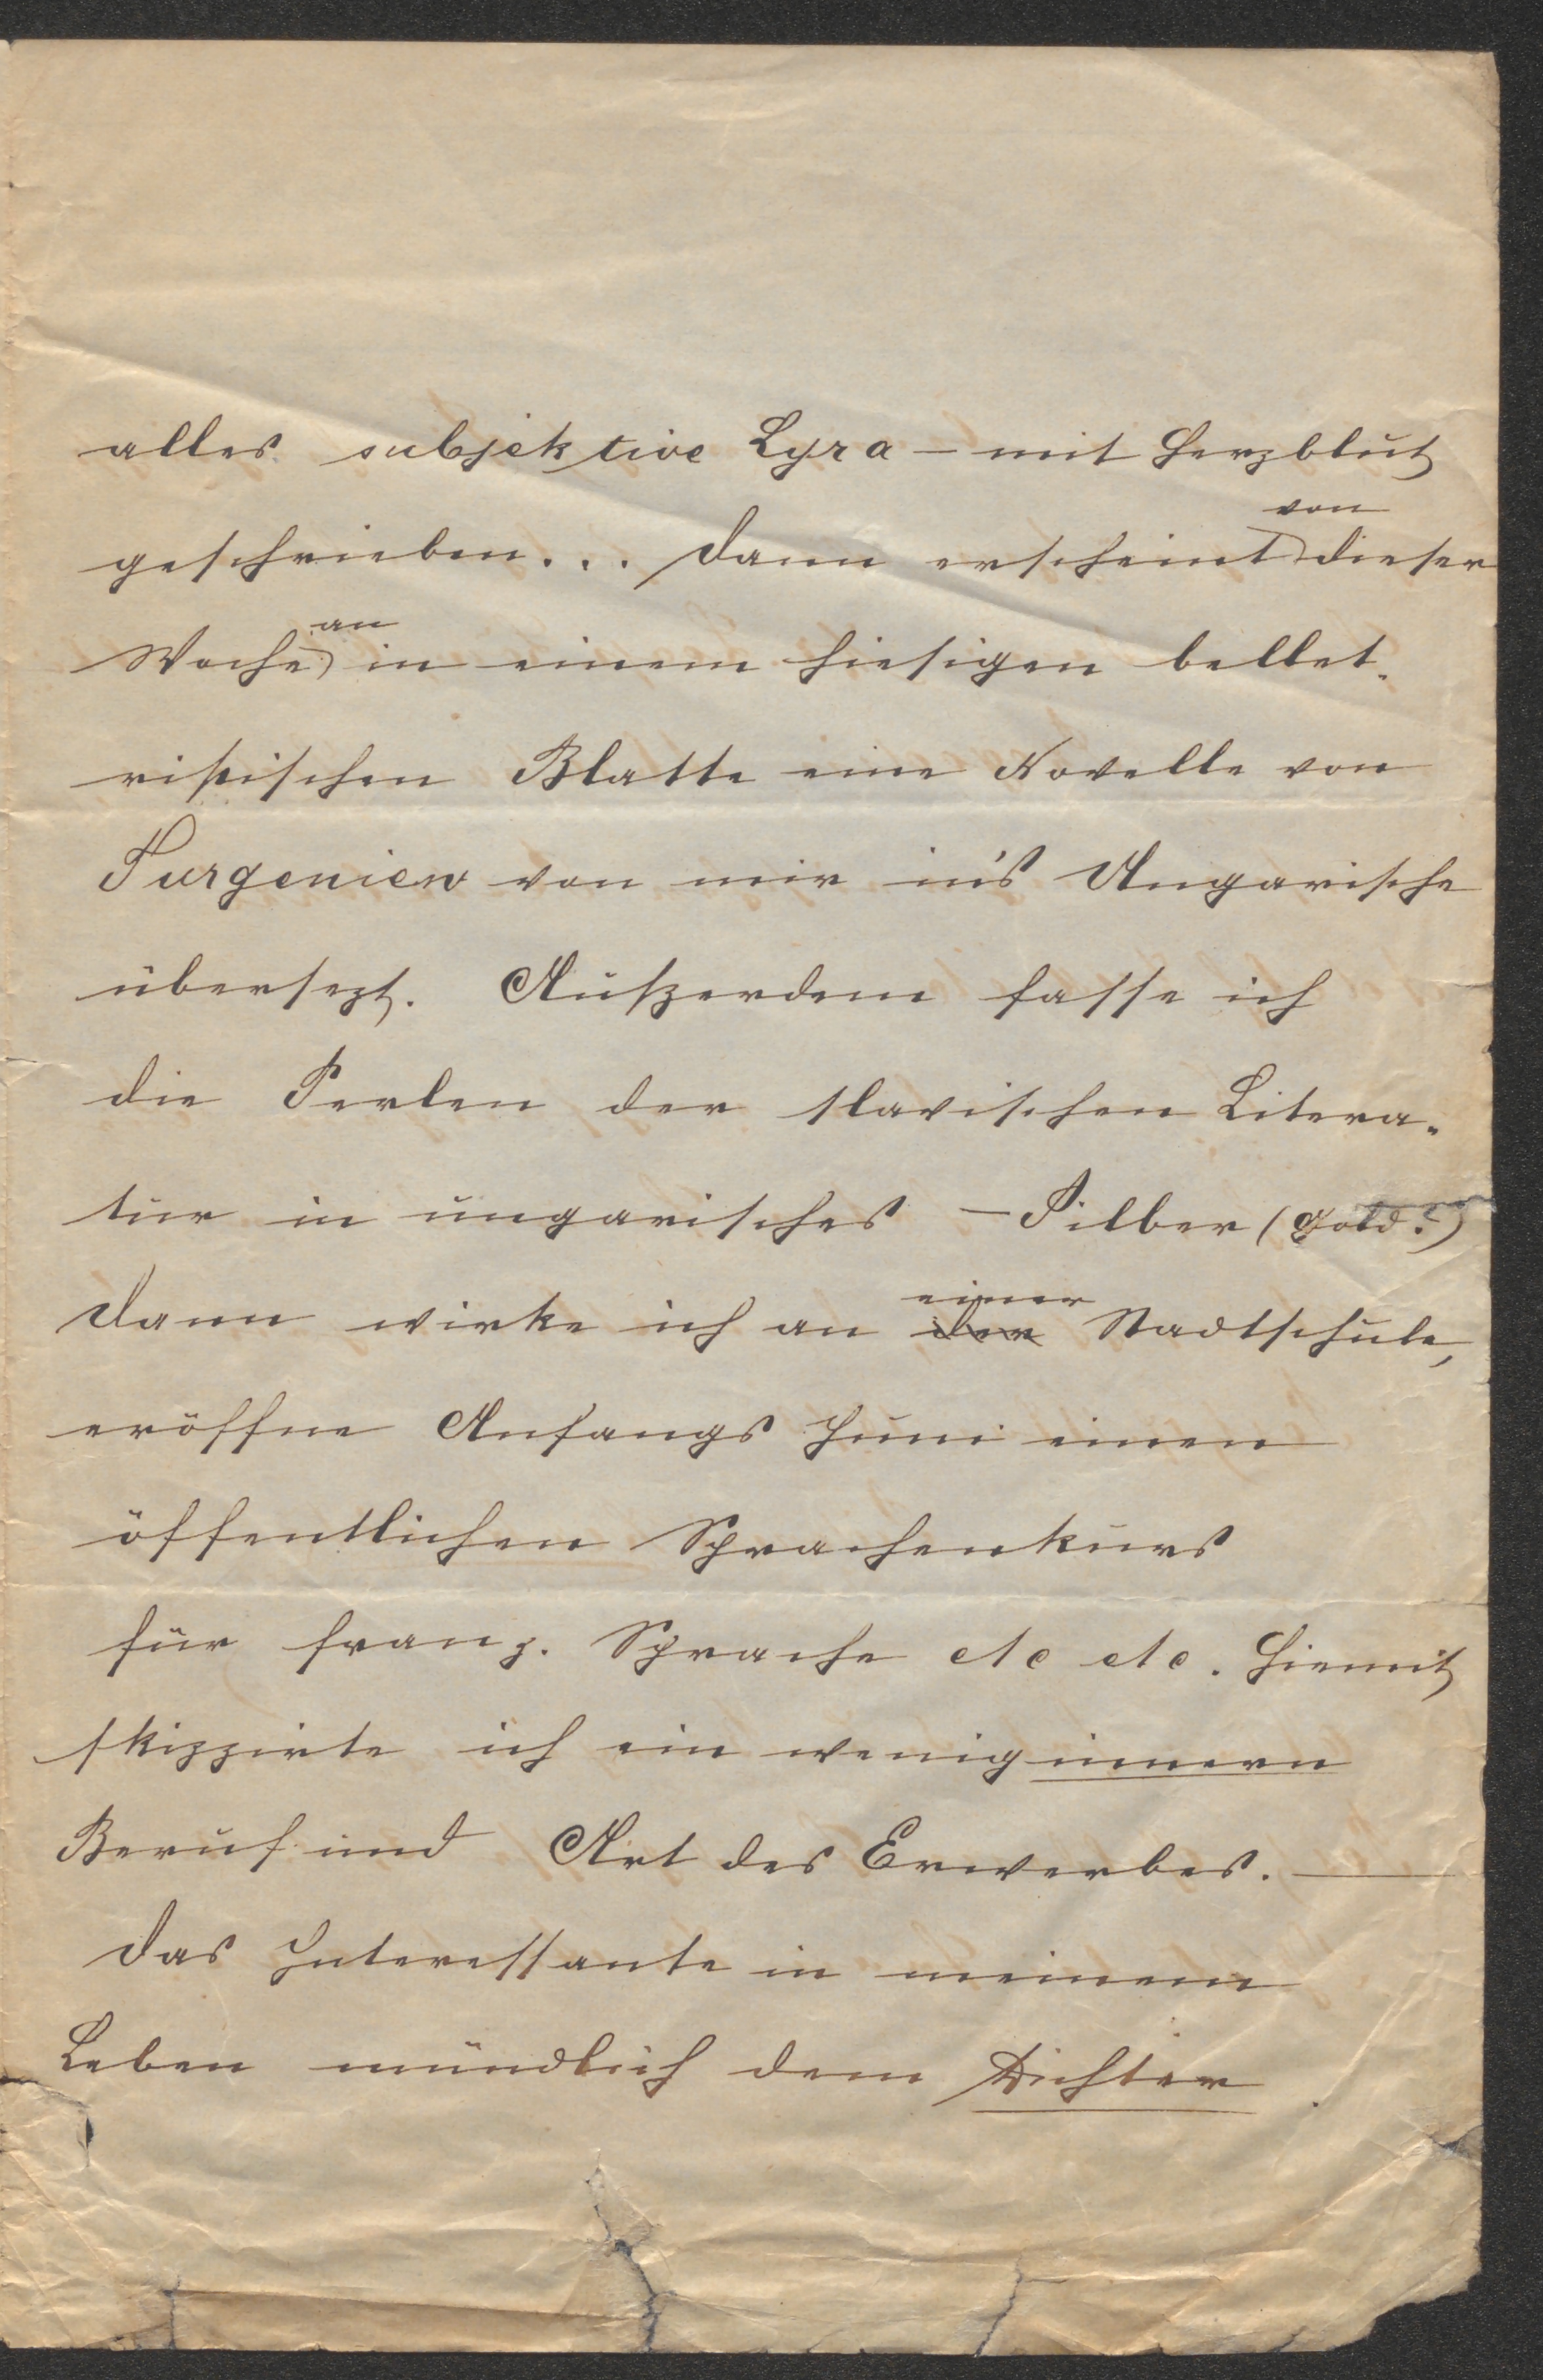 alles subjektive Lyra – mit Herzblut
geschrieben... Dann erscheint von dieser
Woche an in einem hiesigen bellet-
ristischen Blatte eine Novelle von
Turgeniew von mir in's Ungarische
übersezt. Außerdem fasse ich
die Perlen der slavischen Litera-
tur in ungarisches – Silber (Gold?)
Dann wirke ich an der einer Stadtschule,
eröffne Anfangs Juni einen
öffentlichen Sprachenkurs
für franz. Sprache etc etc. Hiemit
skizzirte ich ein wenig innern
Beruf und Art des Erwerbes. —
Das Interessante in meinem
Leben mündlich dem Dichter.